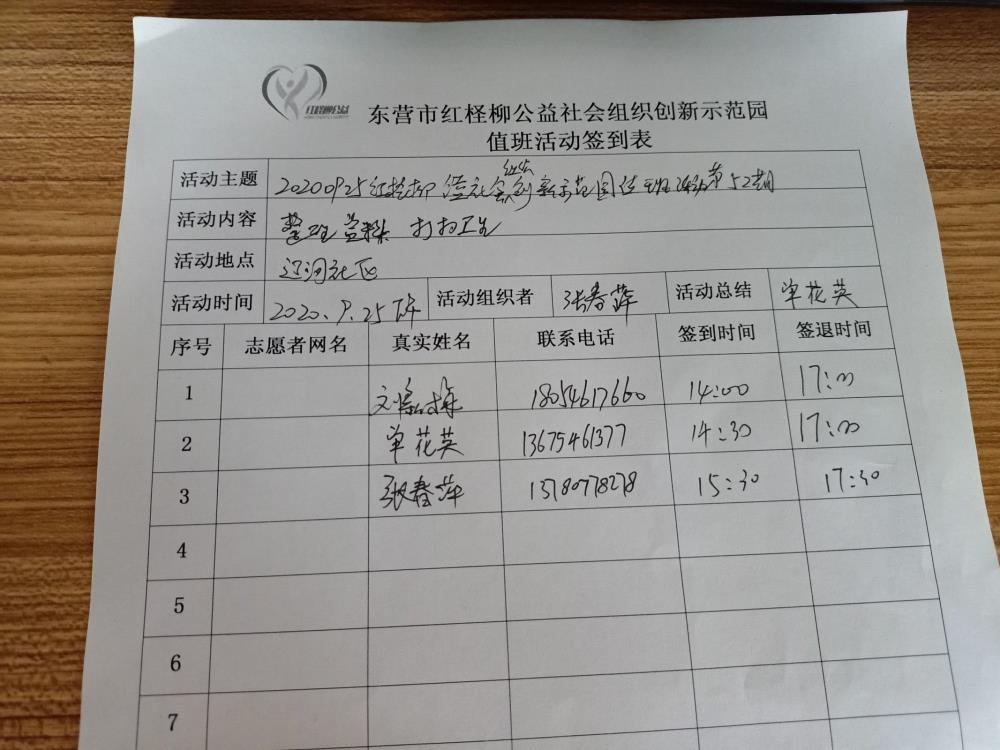 红柽柳公益
东营市红柽柳公益社会组织创新示范园
值班活动签到表
活动主题 20200925红柽柳公益社会组织创新示范园值班活动第52期
活动内容 整理资料 打扫卫生
活动地点 辽河社区
活动时间 2020.9.25下午 活动组织者 张春萍 活动总结 单花英
序号 志愿者网名 真实姓名 联系电话 签到时间 签退时间
1 18054617660 14:00 17:00
2 单花英 13675461377 14:30 17:00
3 张春萍 13780778278 15:30 17:30
4
5
6
7